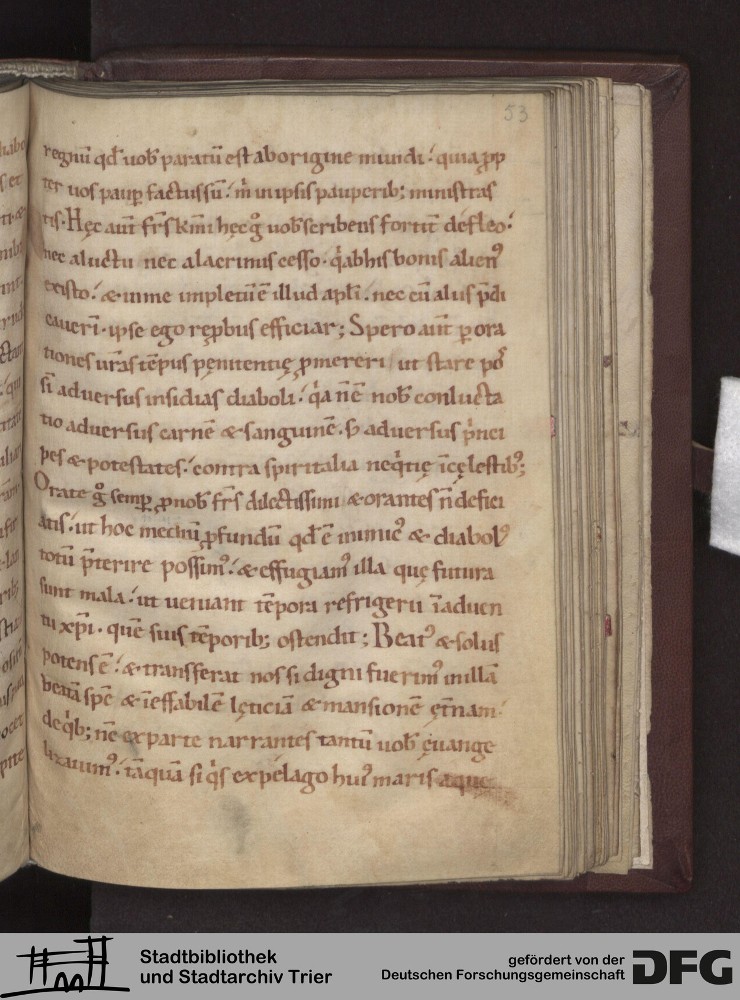 53
regnū qđ uob̄ paratū est aborigine mundi. quia ꝓp
ter uos paup̱ factus sū. m̄ in ipsis pauperib; ministras
tis. Hęc aut̄ fr̄s k̄mi hęc g̊ uob̄ scribens fortit̄ defleo.
nec a luctu nec a lacrimis cesso. q̄a bhis bonis alien9
existo. & in me impletū ē illud apl̄i. nec cū aliis p̄di
caueri. ipse ego rep̱bus efficiar; Spero aut̄ p̱ ora
tiones ur̄as tēpus pęnitentię ꝓmereri ut stare pos
si adversus insidias diaboli. q̄a n̄ ē nob̄ conlucta
tio aduersus carnē & sanguinē. s; aduersus p̄nci
pes & potestates. contra spiritalia neq̄tię ī cęlestib;
Orate g̊ semp̱ ꝓ nob̄ fr̄s dilectissimi & orantes n̄ defici
atis. ut hoc mediū ꝓfundū qđ ē inimic9 & diabol9
totū p̄terire possim9. & effugiam9 illa quę futura
sunt mala. ut ueniant tēpora refrigerii ī aduen
tu xp̄i. quē suis tēporib; ostendit; Beat9 & solus
potens ē. & transferat nos si digni fuerim9 in illā
beatā spē & ī effabilē lęticiā & mansionē ęt̄nam.
de q̄b; n̄c ex parte narrantes tantū uob̄ euange
lizauim9. tāquā si q̄s ex pelago hui9 maris aque
Stadtbibliothek
und Stadtarchiv Trier
gefördert von der
Deutschen Forschungsgemeinschaft
DFG